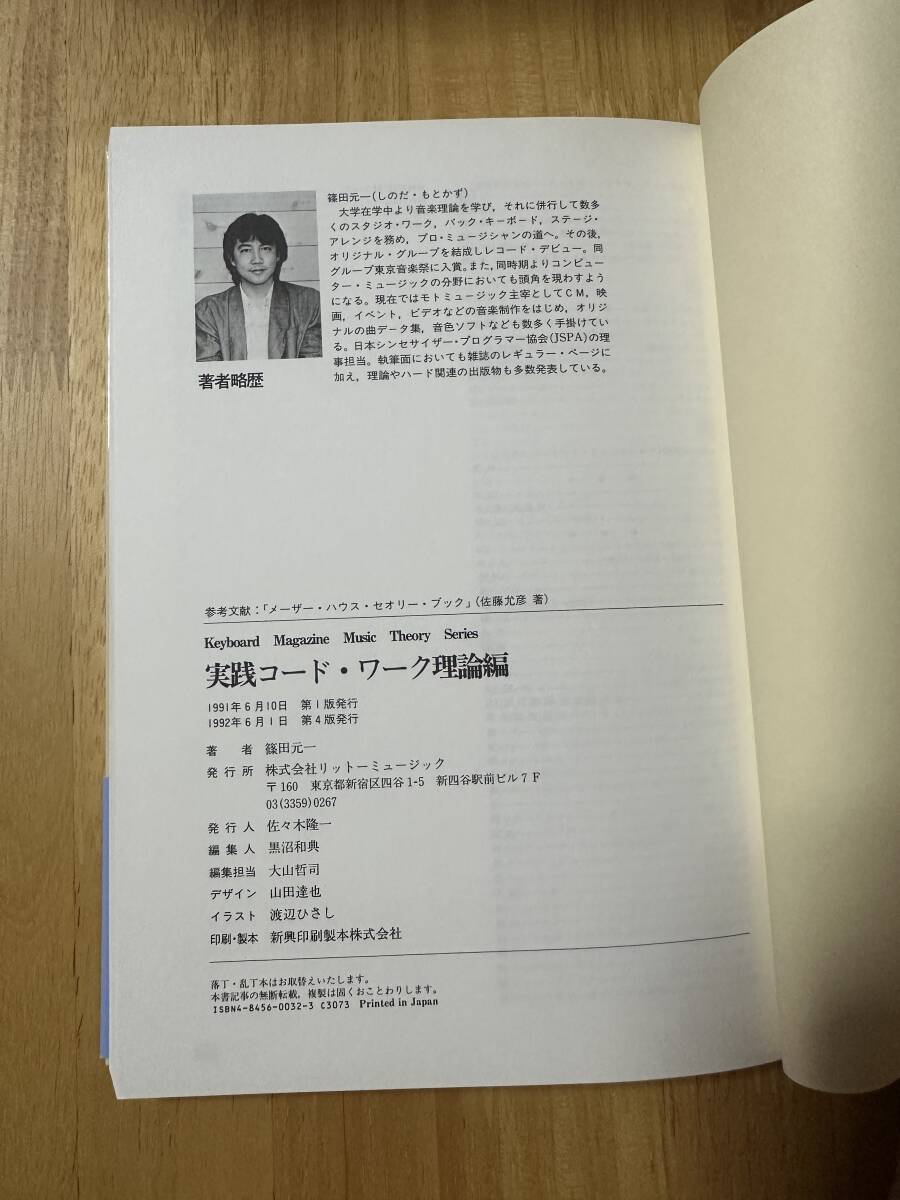 篠田元一(しのだ・もとかず)
大学在学中より音楽理論を学び，それに併行して数多
くのスタジオ・ワーク，バック・キーボード，ステージ・
アレンジを務め，プロ・ミュージシャンの道へ。その後，
オリジナル・グループを結成しレコード・デビュー。同
グループ東京音楽祭に入賞。また，同時期よりコンピュー
ター・ミュージックの分野においても頭角を現わすよう
になる。現在ではモトミュージック主宰としてＣＭ，映
画，イベント，ビデオなどの音楽制作をはじめ，オリジ
ナルの曲データ集，音色ソフトなども数多く手掛けてい
る。日本シンセサイザー・プログラマー協会(JSPA)の理
事担当。執筆面においても雑誌のレギュラー・ページに
加え，理論やハード関連の出版物も多数発表している。
著者略歴
参考文献：「メーザー・ハウス・セオリー・ブック」(佐藤允彦 著)
Keyboard Magazine Music Theory Series
実践コード・ワーク理論編
1991年6月10日 第1版発行
1992年6月1日 第4版発行
著者 篠田元一
発行所 株式会社リットーミュージック
〒160 東京都新宿区四谷1-5 新四谷駅前ビル7F
03(3359)0267
発行人 佐々木隆一
編集人 黒沼和典
編集担当 大山哲司
デザイン 山田達也
イラスト 渡辺ひさし
印刷・製本 新興印刷製本株式会社
落丁・乱丁本はお取替えいたします。
本書記事の無断転載，複製は固くおことわりします。
ISBN4-8456-0032-3 C3073 Printed in Japan